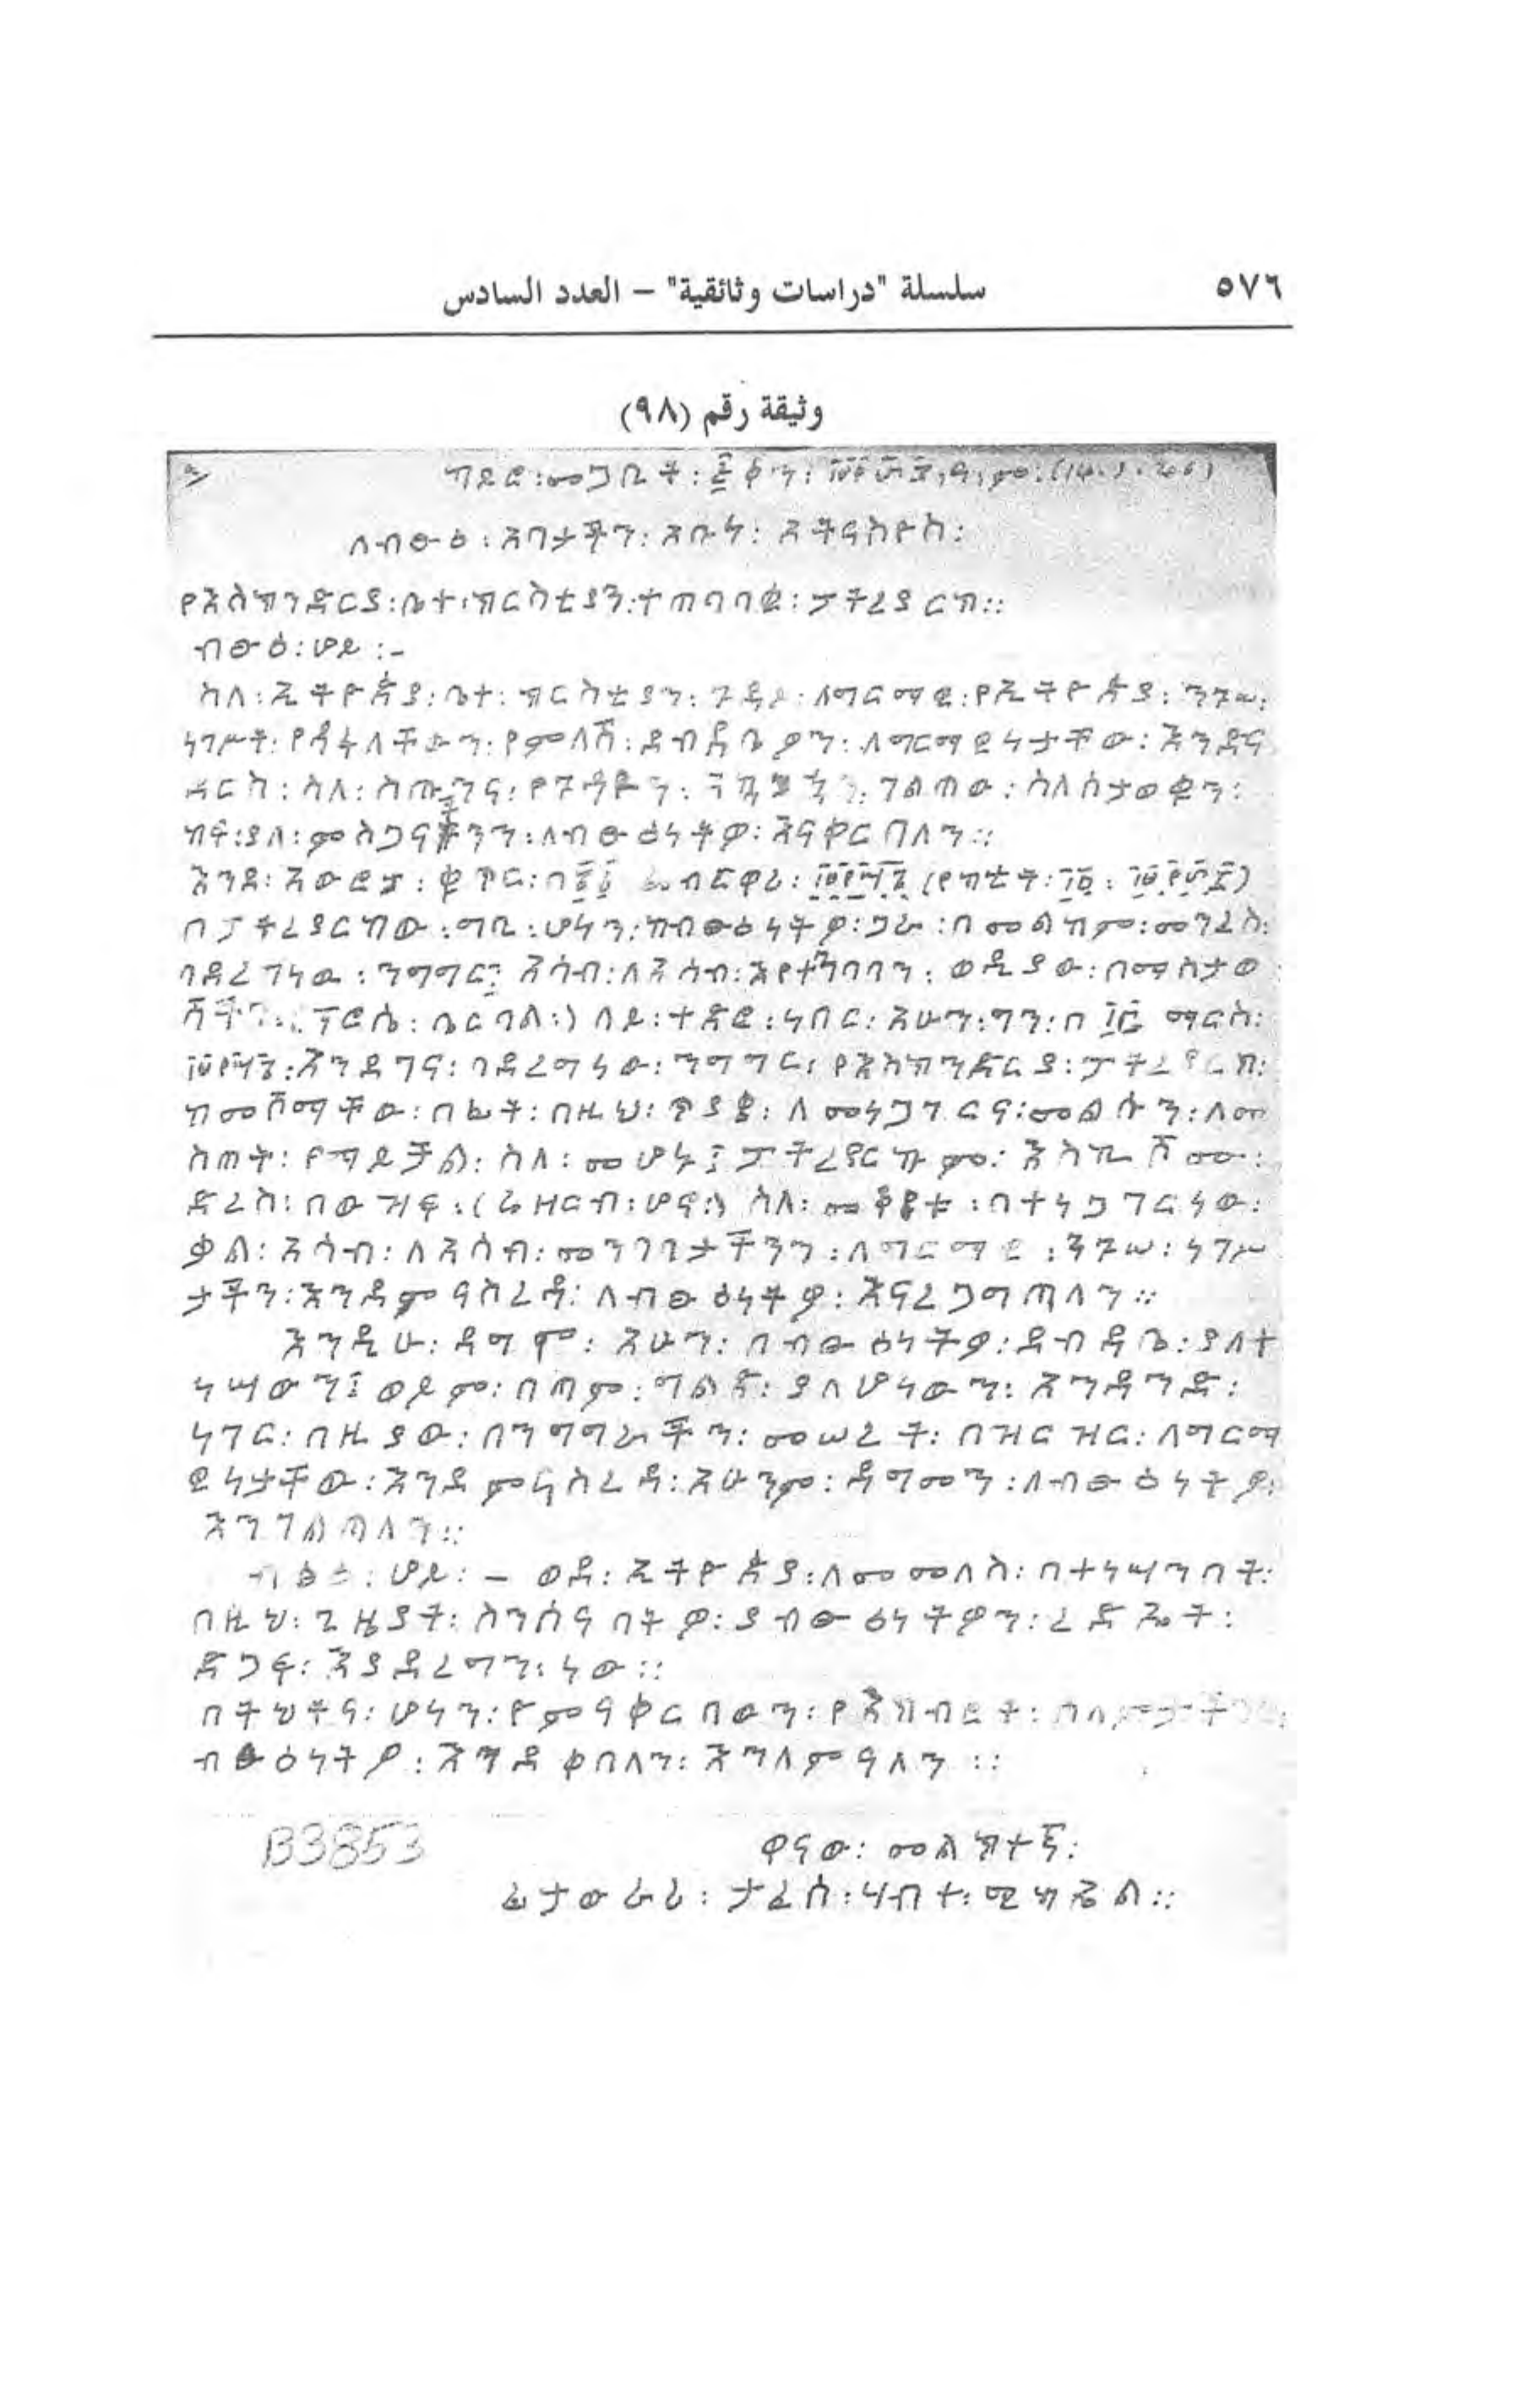 ٥٧٦ سلسلة "دراسات وثائقية" – العدد السادس
وثيقة رقم (٩٨)
ካይሮ፡መጋቢት፡ ቀን፡
ለብፁዕ፡አባታችን፡አቡነ፡አትናስዮስ፡
የእስክንድርያ፡ቤተ፡ክርስቲያን፡ተጠባባቂ፡ፓትረያርክ።
ብፁዕ፡ሆይ፡-
ስለ፡ኢትዮጵያ፡ቤተ፡ክርስቲያን፡ጉዳይ፡ለግርማዊ፡የኢትዮጵያ፡ንጉሠ፡
ነገሥት፡የጻፋለቸውን፡የምላሽ፡ደብዳቤዎን፡ለግርማዊነታቸው፡እንዳና
ቀርስ፡ስለ፡ስጡንና፡የጉዳዩን፡ ገልጠው፡ስለስታወቁን፡
ከፍ፡ያለ፡ምስጋናችንን፡ለብፁዕነትዎ፡እናቀርባለን።
እንደ፡አውሮፓ፡ቁጥር፡በ፳፯ ፌብርዋሪ፡
በፓትረያርክው፡ግቢ፡ሆነን፡ከብፁዕነትዎ፡ጋራ፡በመልካም፡መንፈስ፡
ባደረግነው፡ንግግር፤ አሳብ፡ለአሳብ፡እየተግባባን፡ወዲያው፡በማስታወ
ሻችን፡(ፕሮሴ፡ቤርባል፡) ላይ፡ተጽፎ፡ነበር፡አሁን፡ግን፡በ ማርስ፡
እንደገና፡ባደረግነው፡ንግግር፡የእስክንድርያ፡ፓትረያርክ፡
ከመሾማቸው፡በፊት፡በዚህ፡ጥያቄ፡ለመነጋገርና፡መልሱን፡ለመ
ስጠት፡የማይቻል፡ስለ፡መሆኑ፤ፓትረያርኩም፡እስኪሾሙ፡
ድረስ፡በውዝፍ፡(ሬዘርብ፡ሆኖ፡) ስለ፡መቆየቱ፡በተነጋገርነው፡
ቃል፡አሳብ፡ለአሳብ፡መግባባታችንን፡ለግርማዊ፡ንጉሠ፡ነገሥ
ታችን፡እንዳምናስረዳ፡ለብፁዕነትዎ፡እናረጋግጣለን።
እንዲሁ፡ዳግም፡አሁን፡በብፁዕነትዎ፡ደብዳቤ፡ያለተ
ነሣውን፤ወይም፡በጣም፡ግልጽ፡ያለሆነውን፡አንዳንድ፡
ነገር፡በዚያው፡በንግግራችን፡መሠረት፡በዝርዝር፡ለግርማ
ዊነታቸው፡እንደምናስረዳ፡አሁንም፡ዳግመን፡ለብፁዕነትዎ፡
እንገልጣለን።
ብፁዕ፡ሆይ፡– ወደ፡ኢትዮጵያ፡ለመመለስ፡በተነሣንበት፡
በዚህ፡ጊዜያት፡ስንሰናበትዎ፡ያብፁዕነትዎን፡ረድኤት፡
ድጋፍ፡እያደረግን፡ነው።
በትህትና፡ሆነን፡የምናቀርበውን፡የእክብሮት፡ሰላምታችንን፡
ብፁዕነትዎ፡እንዳቀበለን፡እንለምናለን።
B3853
ዋናው፡መልክተኛ፡
ፊታውራሪ፡ታፈሰ፡ሃብተ፡ሚካኤል።